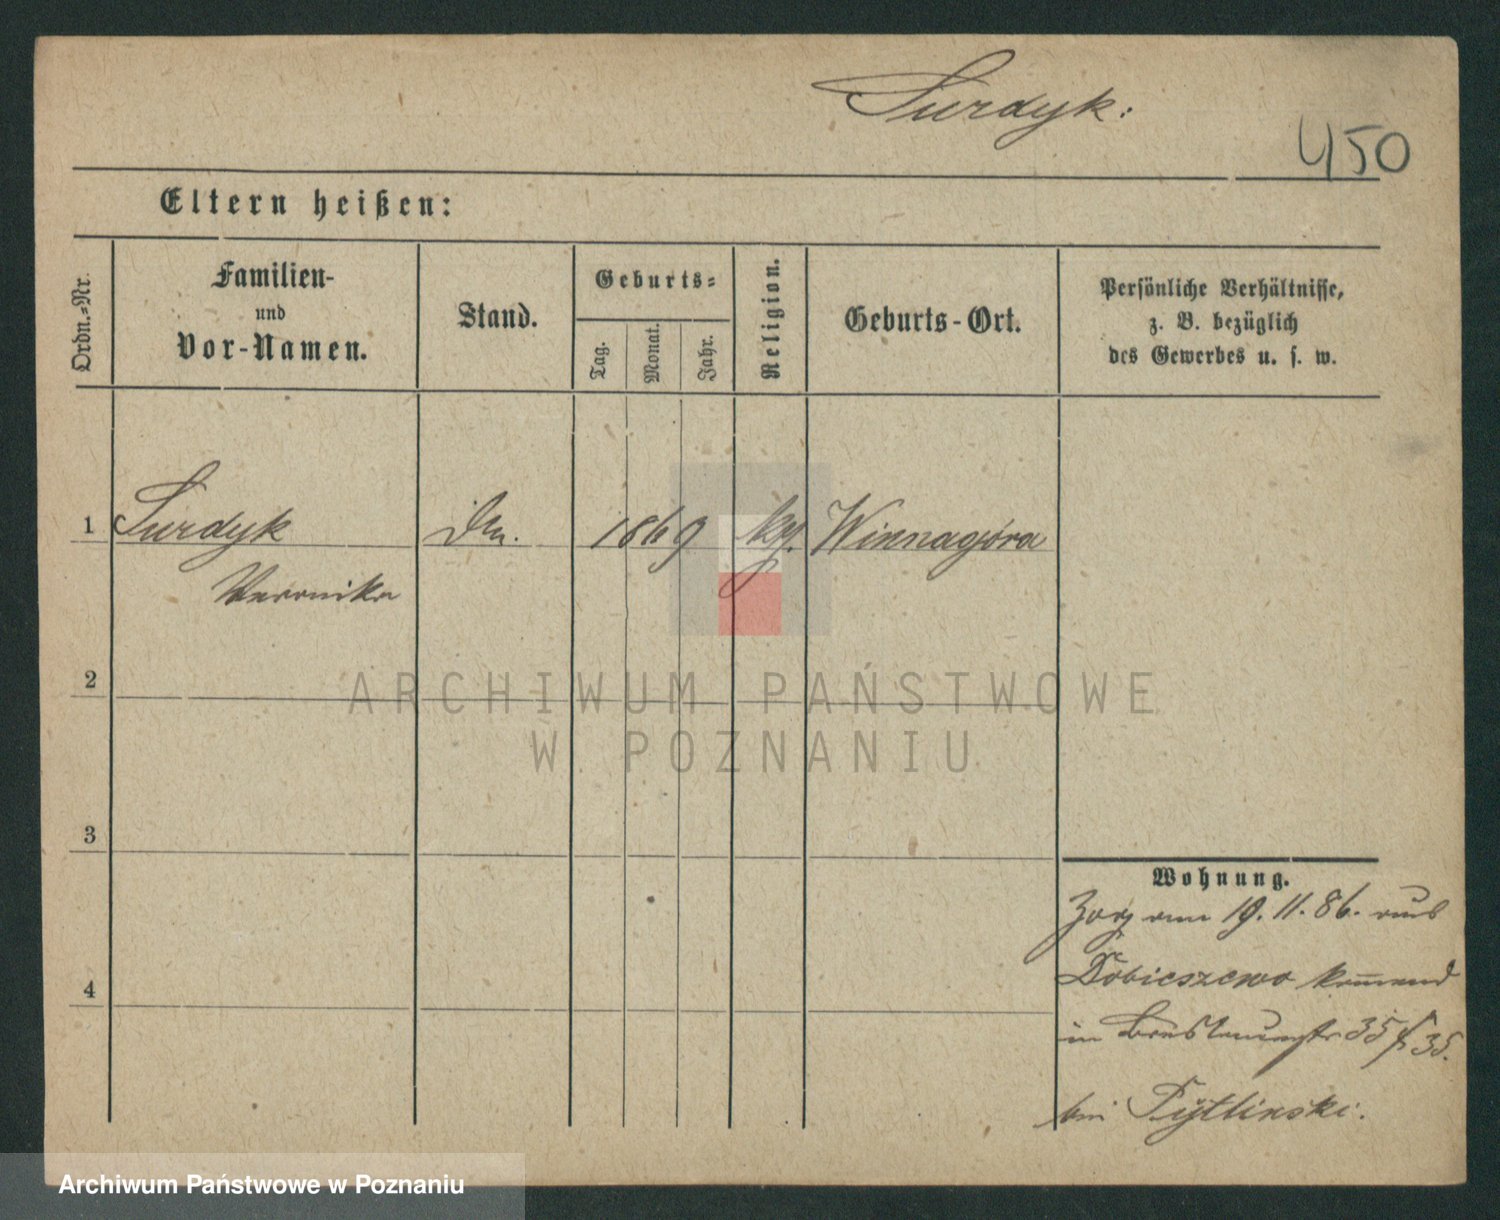 Surdyk:
450
Eltern heißen:
Ordn.-Nr.
Familien-
und
Vor-Namen.
Stand.
Geburts-
Tag.
Monat.
Jahr.
Religion.
Geburts-Ort.
Persönliche Verhältnisse,
z. B. bezüglich
des Gewerbes u. s. w.
1 Surdyk 1869 Winnagóra
Veronika
2
3
4
Wohnung.
Zog am 19.11.86. aus
Dobieszewo kommend
in 35
bei Pytlinski.
ARCHIWUM PAŃSTWOWE
W POZNANIU
Archiwum Państwowe w Poznaniu